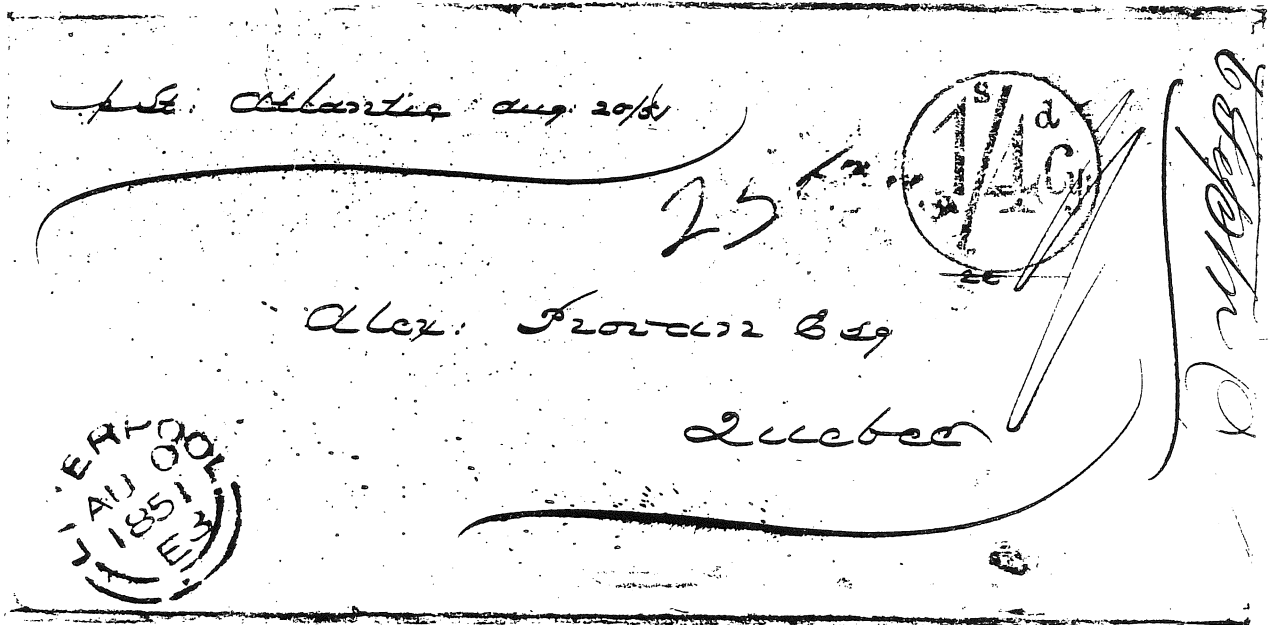 p St. Atlantic Aug. 20/51
1s/4d Cy
25
Alex: Provan Esq
Quebec
LIVERPOOL
AU 20
1851